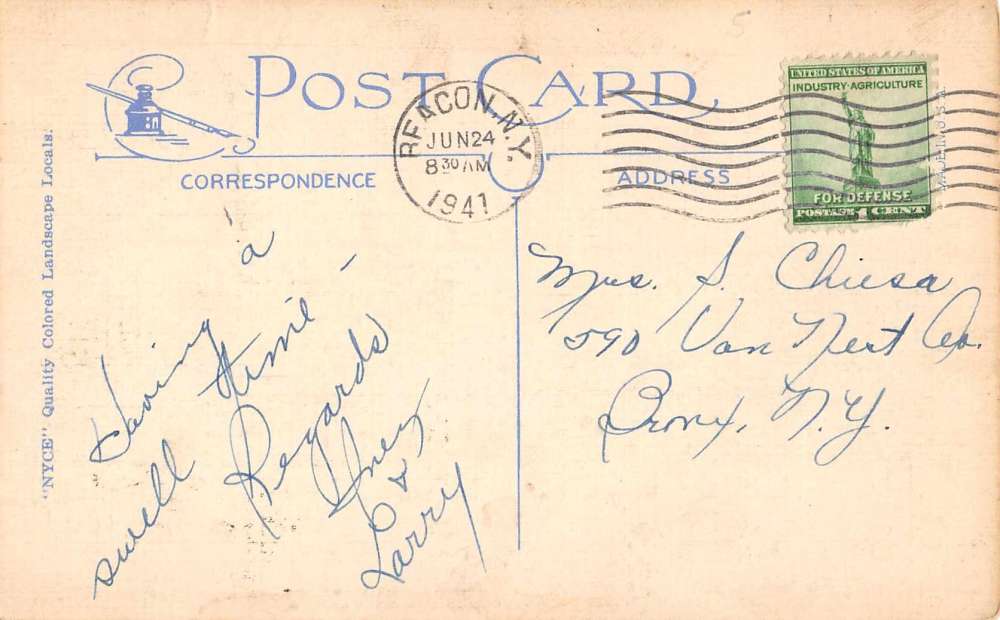 POST CARD
CORRESPONDENCE
ADDRESS
"NYCE" Quality Colored Landscape Locals.
BEACON, N.Y.
JUN 24
8 30 AM
1941
UNITED STATES OF AMERICA
INDUSTRY·AGRICULTURE
FOR DEFENSE
POSTAGE 1 CENT
MADE IN U.S.A.
Having a
swell time -
Regards
Inez
&
Larry
Mrs. S. Chiesa
590 Van Nest Av.
Bronx, N.Y.
5